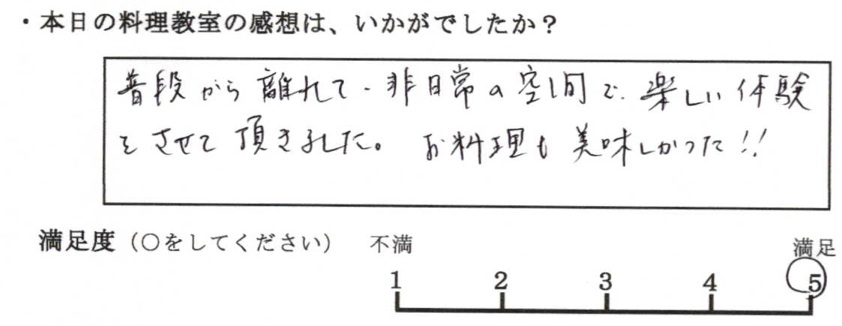 ・本日の料理教室の感想は、いかがでしたか？
普段から離れて、非日常の空間で、楽しい体験
をさせて頂きました。お料理も美味しかった!!
満足度（○をしてください） 不満 満足
1 2 3 4 5